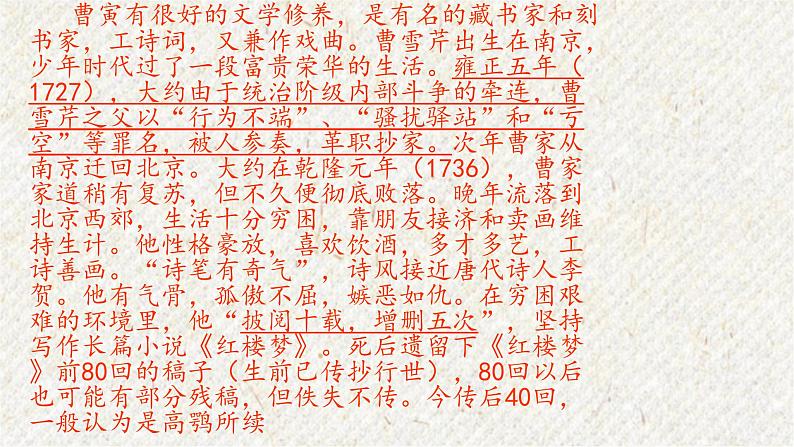 曹寅有很好的文学修养，是有名的藏书家和刻
书家，工诗词，又兼作戏曲。曹雪芹出生在南京，
少年时代过了一段富贵荣华的生活。雍正五年（
1727），大约由于统治阶级内部斗争的牵连，曹
雪芹之父以“行为不端”、“骚扰驿站”和“亏
空”等罪名，被人参奏，革职抄家。次年曹家从
南京迁回北京。大约在乾隆元年（1736），曹家
家道稍有复苏，但不久便彻底败落。晚年流落到
北京西郊，生活十分穷困，靠朋友接济和卖画维
持生计。他性格豪放，喜欢饮酒，多才多艺，工
诗善画。“诗笔有奇气”，诗风接近唐代诗人李
贺。他有气骨，孤傲不屈，嫉恶如仇。在穷困艰
难的环境里，他“披阅十载，增删五次”，坚持
写作长篇小说《红楼梦》。死后遗留下《红楼梦
》前80回的稿子（生前已传抄行世），80回以后
也可能有部分残稿，但佚失不传。今传后40回，
一般认为是高鹗所续